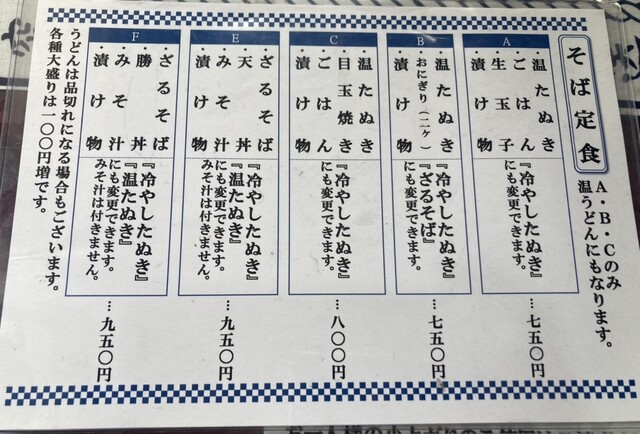 そば定食
A・B・Cのみ
温うどんにもなります。
A
・温たぬき
・ごはん
・生玉子
・漬け物
『冷やしたぬき』
にも変更できます。
…七五〇円
B
・温たぬき
・おにぎり（二ヶ）
・漬け物
『冷やしたぬき』
『ざるそば』
にも変更できます。
…七五〇円
C
・温たぬき
・目玉焼き
・ごはん
・漬け物
『冷やしたぬき』
にも変更できます。
…八〇〇円
E
・ざるそば
・天丼
・みそ汁
・漬け物
『冷やしたぬき』
『温たぬき』
にも変更できます。
みそ汁は付きません。
…九五〇円
F
・ざるそば
・勝丼
・みそ汁
・漬け物
『冷やしたぬき』
『温たぬき』
にも変更できます。
みそ汁は付きません。
…九五〇円
うどんは品切れになる場合もございます。
各種大盛りは一〇〇円増です。